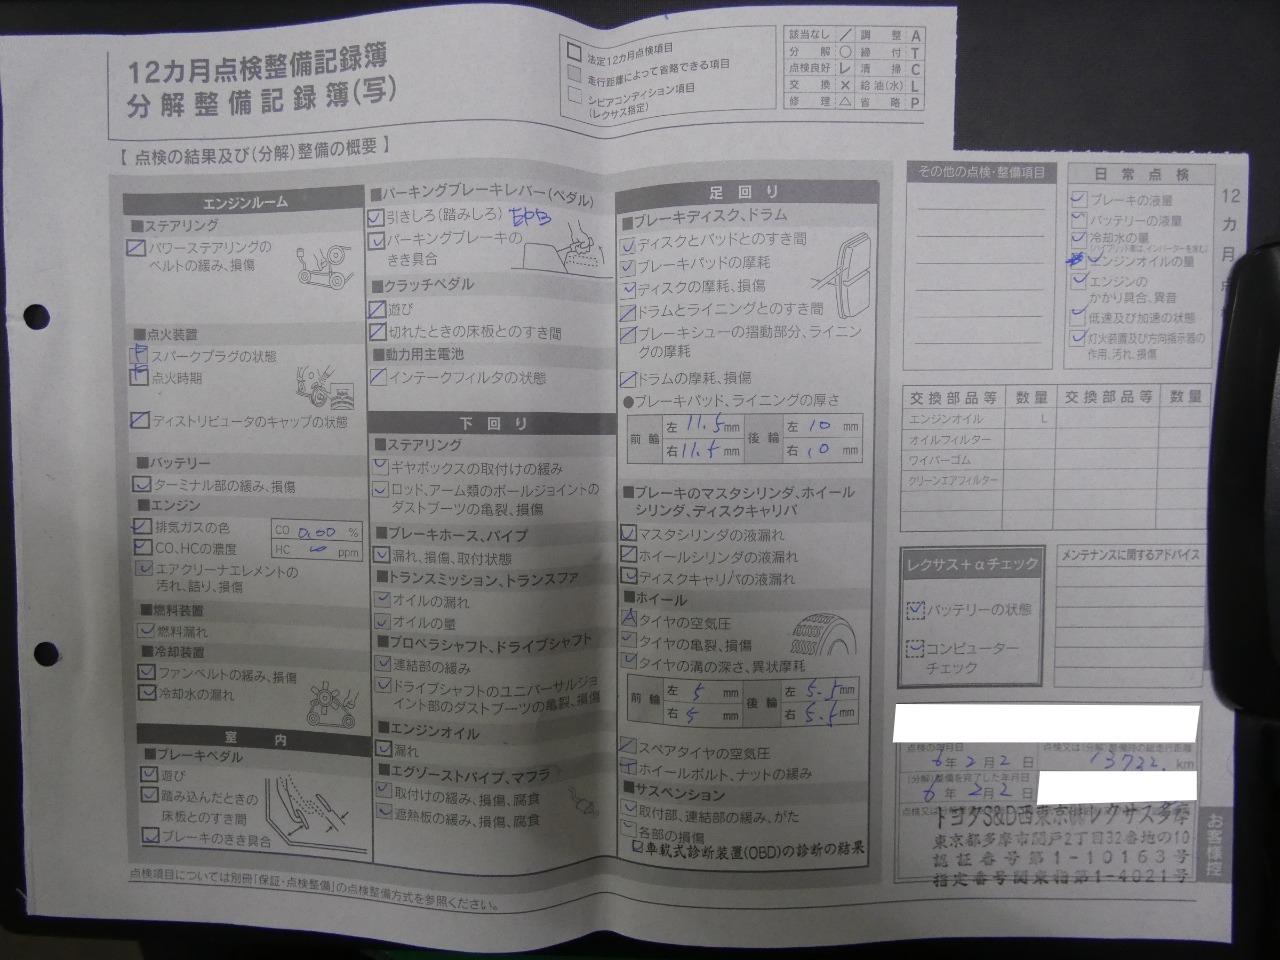 12カ月点検整備記録簿
分解整備記録簿(写)
法定12カ月点検項目
走行距離によって省略できる項目
シビアコンディション項目
(レクサス指定)
該当なし ／ 調整 A
分解 ○ 締付 T
点検良好 レ 清掃 C
交換 × 給油(水) L
修理 △ 省略 P
【 点検の結果及び(分解)整備の概要 】
エンジンルーム
■ステアリング
パワーステアリングの
ベルトの緩み、損傷
■点火装置
P スパークプラグの状態
P 点火時期
ディストリビュータのキャップの状態
■バッテリー
ターミナル部の緩み、損傷
■エンジン
排気ガスの色
CO、HCの濃度
CO 0.00 %
HC ppm
エアクリーナエレメントの
汚れ、詰り、損傷
■燃料装置
燃料漏れ
■冷却装置
ファンベルトの緩み、損傷
冷却水の漏れ
室内
■ブレーキペダル
遊び
踏み込んだときの
床板とのすき間
ブレーキのきき具合
■パーキングブレーキレバー(ペダル)
引きしろ(踏みしろ)
パーキングブレーキの
きき具合
■クラッチペダル
遊び
切れたときの床板とのすき間
■動力用主電池
インテークフィルタの状態
下回り
■ステアリング
ギヤボックスの取付けの緩み
ロッド、アーム類のボールジョイントの
ダストブーツの亀裂、損傷
■ブレーキホース、パイプ
漏れ、損傷、取付状態
■トランスミッション、トランスファ
オイルの漏れ
オイルの量
■プロペラシャフト、ドライブシャフト
連結部の緩み
ドライブシャフトのユニバーサルジョ
イント部のダストブーツの亀裂、損傷
■エンジンオイル
漏れ
■エグゾーストパイプ、マフラ
取付けの緩み、損傷、腐食
遮熱板の緩み、損傷、腐食
足回り
■ブレーキディスク、ドラム
ディスクとパッドとのすき間
ブレーキパッドの摩耗
ディスクの摩耗、損傷
ドラムとライニングとのすき間
ブレーキシューの摺動部分、ライニン
グの摩耗
ドラムの摩耗、損傷
●ブレーキパッド、ライニングの厚さ
前輪 左 11.5 mm 後輪 左 10 mm
右 11.5 mm 右 10 mm
■ブレーキのマスタシリンダ、ホイール
シリンダ、ディスクキャリパ
マスタシリンダの液漏れ
ホイールシリンダの液漏れ
ディスクキャリパの液漏れ
■ホイール
A タイヤの空気圧
タイヤの亀裂、損傷
タイヤの溝の深さ、異状摩耗
前輪 左 5 mm 後輪 左 5.5 mm
右 5 mm 右 5.5 mm
スペアタイヤの空気圧
T ホイールボルト、ナットの緩み
■サスペンション
取付部、連結部の緩み、がた
各部の損傷
車載式診断装置(OBD)の診断の結果
点検項目については別冊「保証・点検整備」の点検整備方式を参照ください。
その他の点検・整備項目
日常点検
ブレーキの液量
バッテリーの液量
冷却水の量
(ハイブリッド車は、インバーターを含む)
エンジンオイルの量
エンジンの
かかり具合、異音
低速及び加速の状態
灯火装置及び方向指示器の
作用、汚れ、損傷
12カ月
交換部品等 数量 交換部品等 数量
エンジンオイル L
オイルフィルター
ワイパーゴム
クリーンエアフィルター
レクサス＋αチェック
バッテリーの状態
コンピューター
チェック
メンテナンスに関するアドバイス
点検の年月日
6年2月2日
点検又は(分解)整備時の総走行距離
13722 km
(分解)整備を完了した年月日
6年2月2日
トヨタS&D西東京㈱レクサス多摩
東京都多摩市関戸2丁目32番地の10
認証番号第1-10163号
指定番号関東指第1-4021号
お客様控